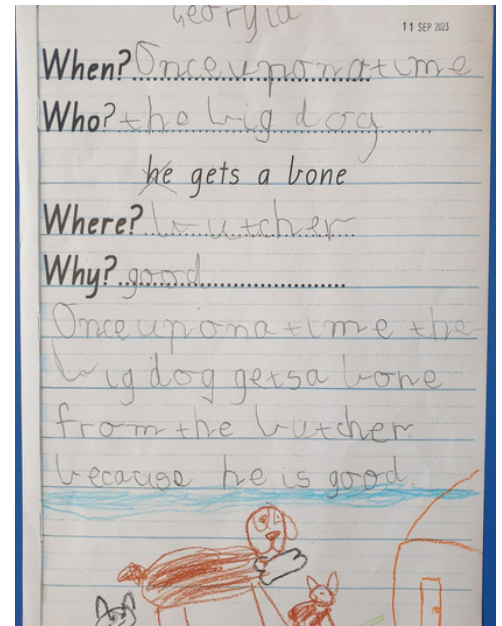 Georgia
11 SEP 2023
When? Once upon a time
Who? the big dog
he gets a bone
Where? butcher
Why? good
Once upon a time the
big dog gets a bone
from the butcher
because he is good.